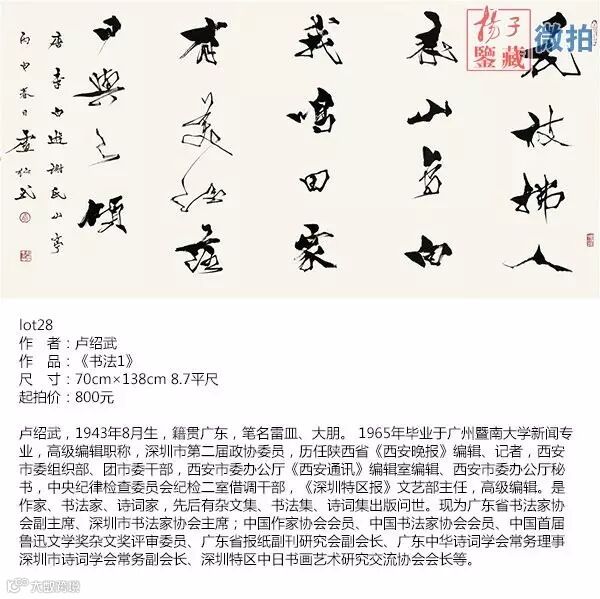 揚子
鉴藏
微拍
花枝拂人
来山鸟向
我鳴田家
有美酒落
日與之傾
唐李白遊謝氏山亭
丙申春日 盧紹武
lot28
作 者：卢绍武
作 品：《书法1》
尺 寸：70cm×138cm 8.7平尺
起拍价：800元
卢绍武，1943年8月生，籍贯广东，笔名雷皿、大朋。 1965年毕业于广州暨南大学新闻专
业，高级编辑职称，深圳市第二届政协委员，历任陕西省《西安晚报》编辑、记者，西安
市委组织部、团市委干部，西安市委办公厅《西安通讯》编辑室编辑、西安市委办公厅秘
书，中央纪律检查委员会纪检二室借调干部，《深圳特区报》文艺部主任，高级编辑。是
作家、书法家、诗词家，先后有杂文集、书法集、诗词集出版问世。现为广东省书法家协
会副主席、深圳市书法家协会主席；中国作家协会会员、中国书法家协会会员、中国首届
鲁迅文学奖杂文奖评审委员、广东省报纸副刊研究会副会长、广东中华诗词学会常务理事
深圳市诗词学会常务副会长、深圳特区中日书画艺术研究交流协会会长等。
大数跨境